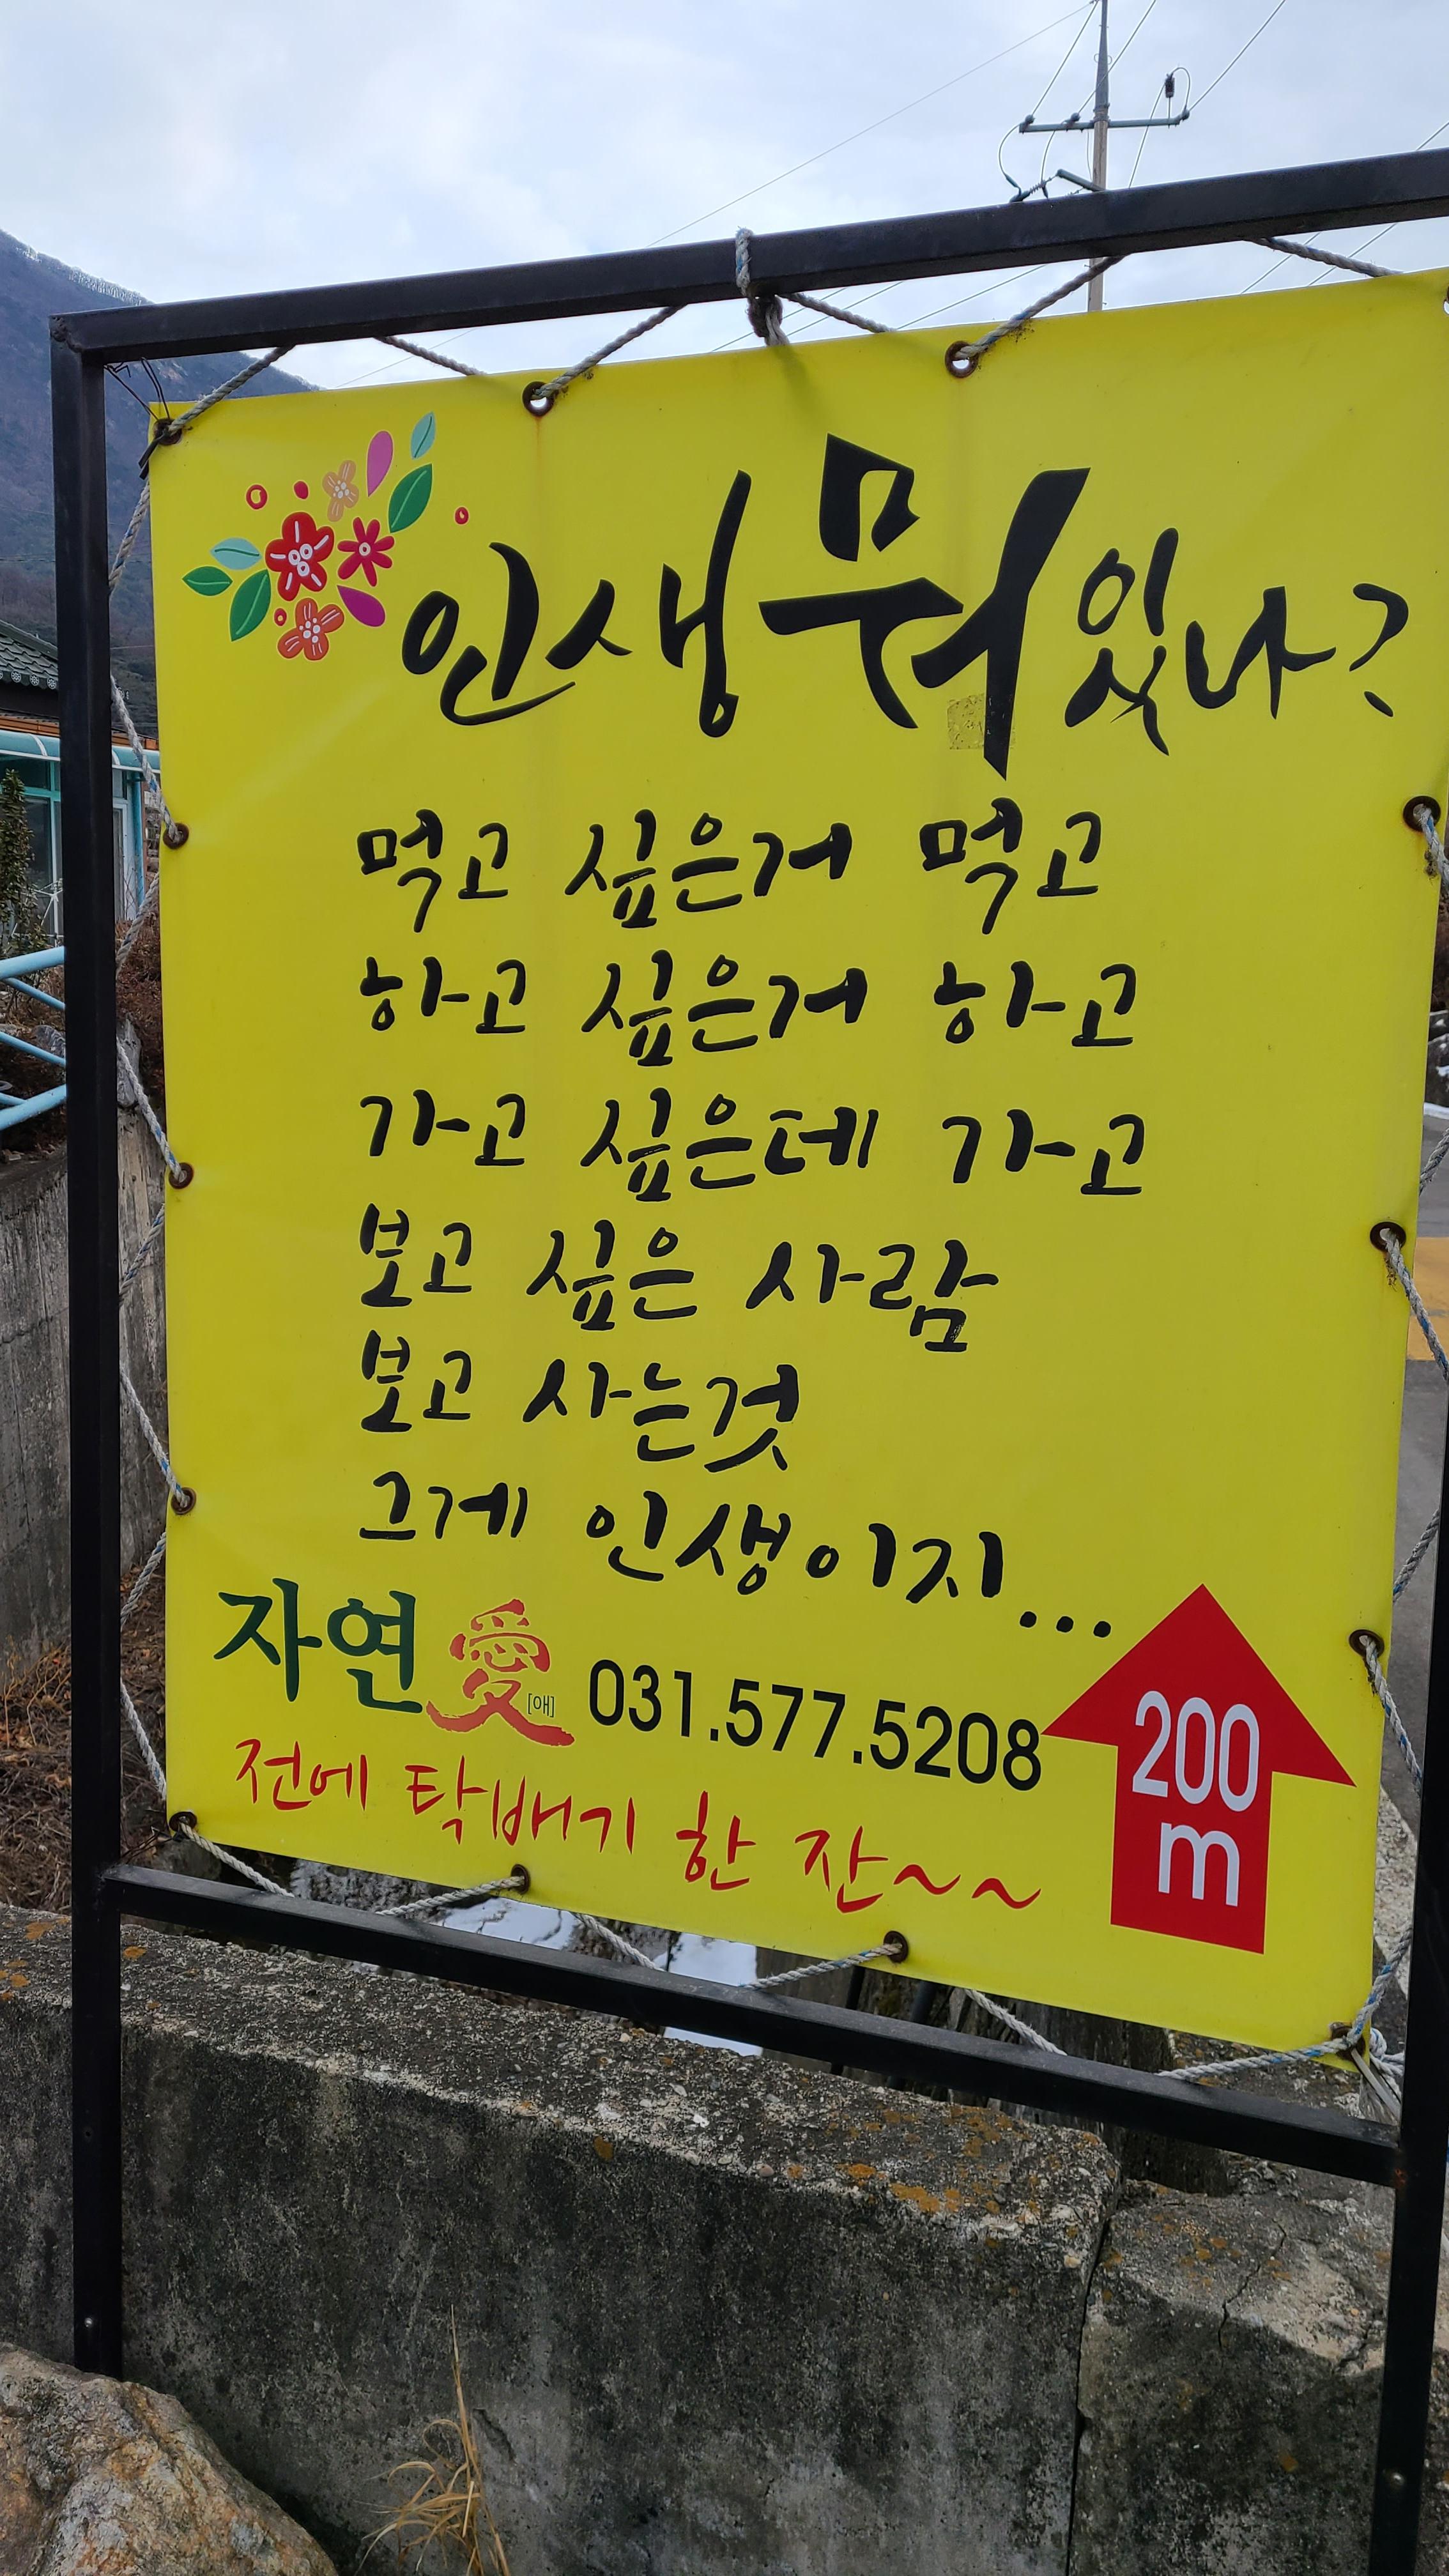 인생 뭐 있나?
먹고 싶은거 먹고
하고 싶은거 하고
가고 싶은데 가고
보고 싶은 사람
보고 사는것
그게 인생이지...
자연愛[애] 031.577.5208
200
m
전에 탁배기 한 잔~~